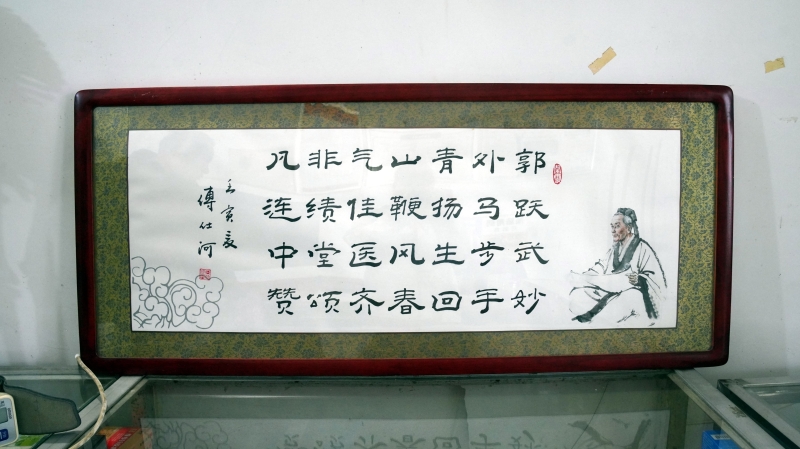 郭外青山气非凡
跃马扬鞭佳绩连
武步生风医堂中
妙手回春齐颂赞
壬寅夏
傅仕河